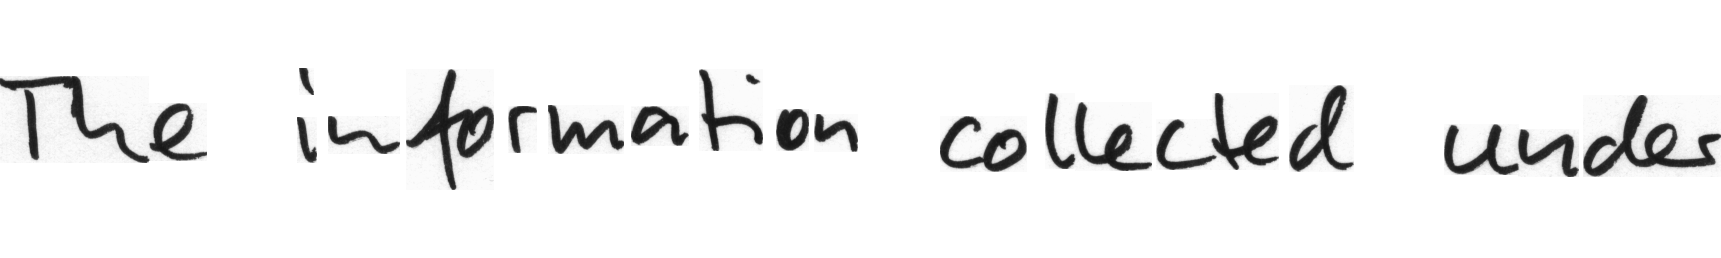 The information collected under